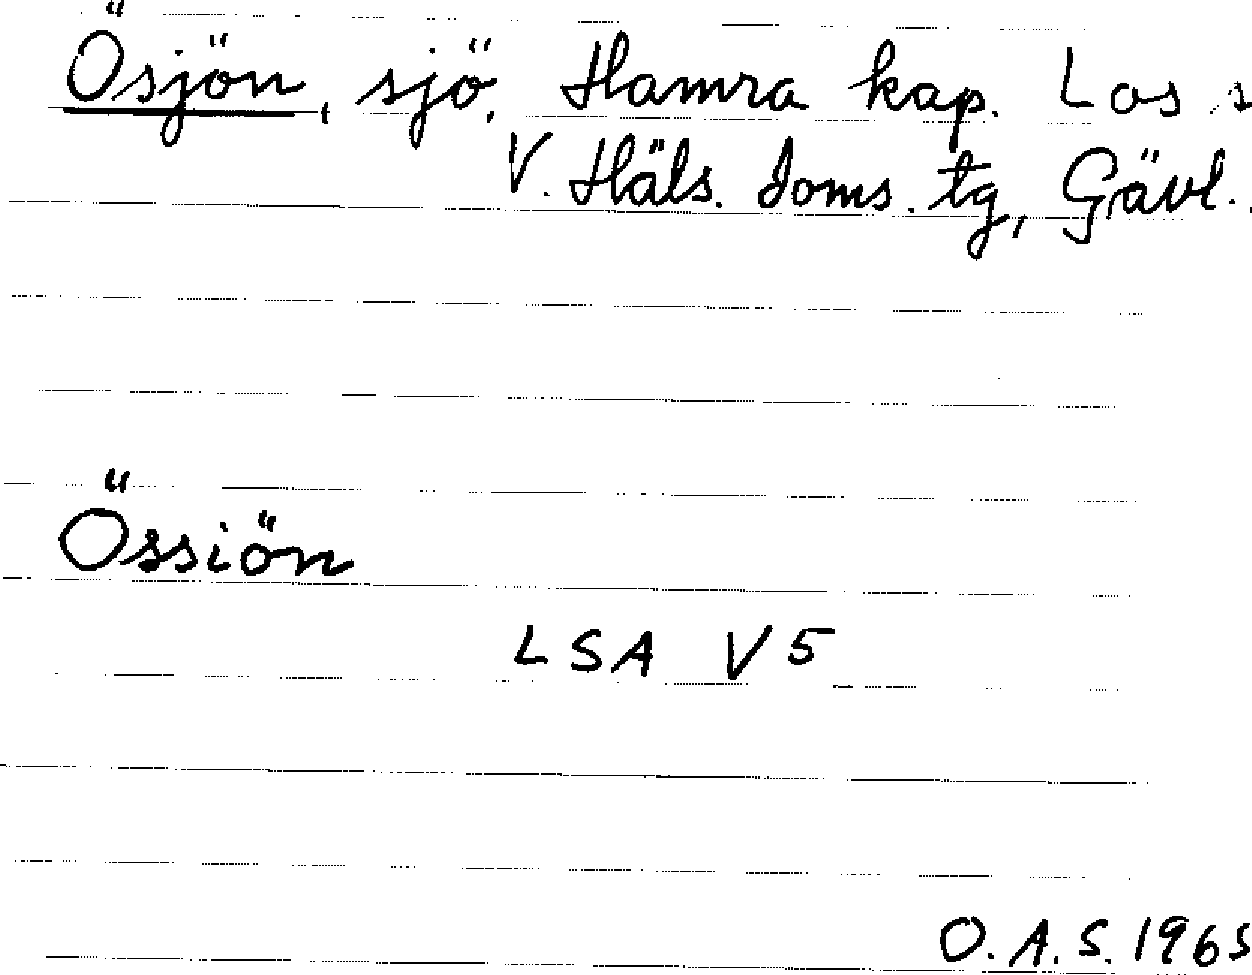 Ösjön, sjö, Hamra kap. Los s
V. Häls. doms. tg, Gävl.
Össiön
LSA V5
O.A.S. 1965